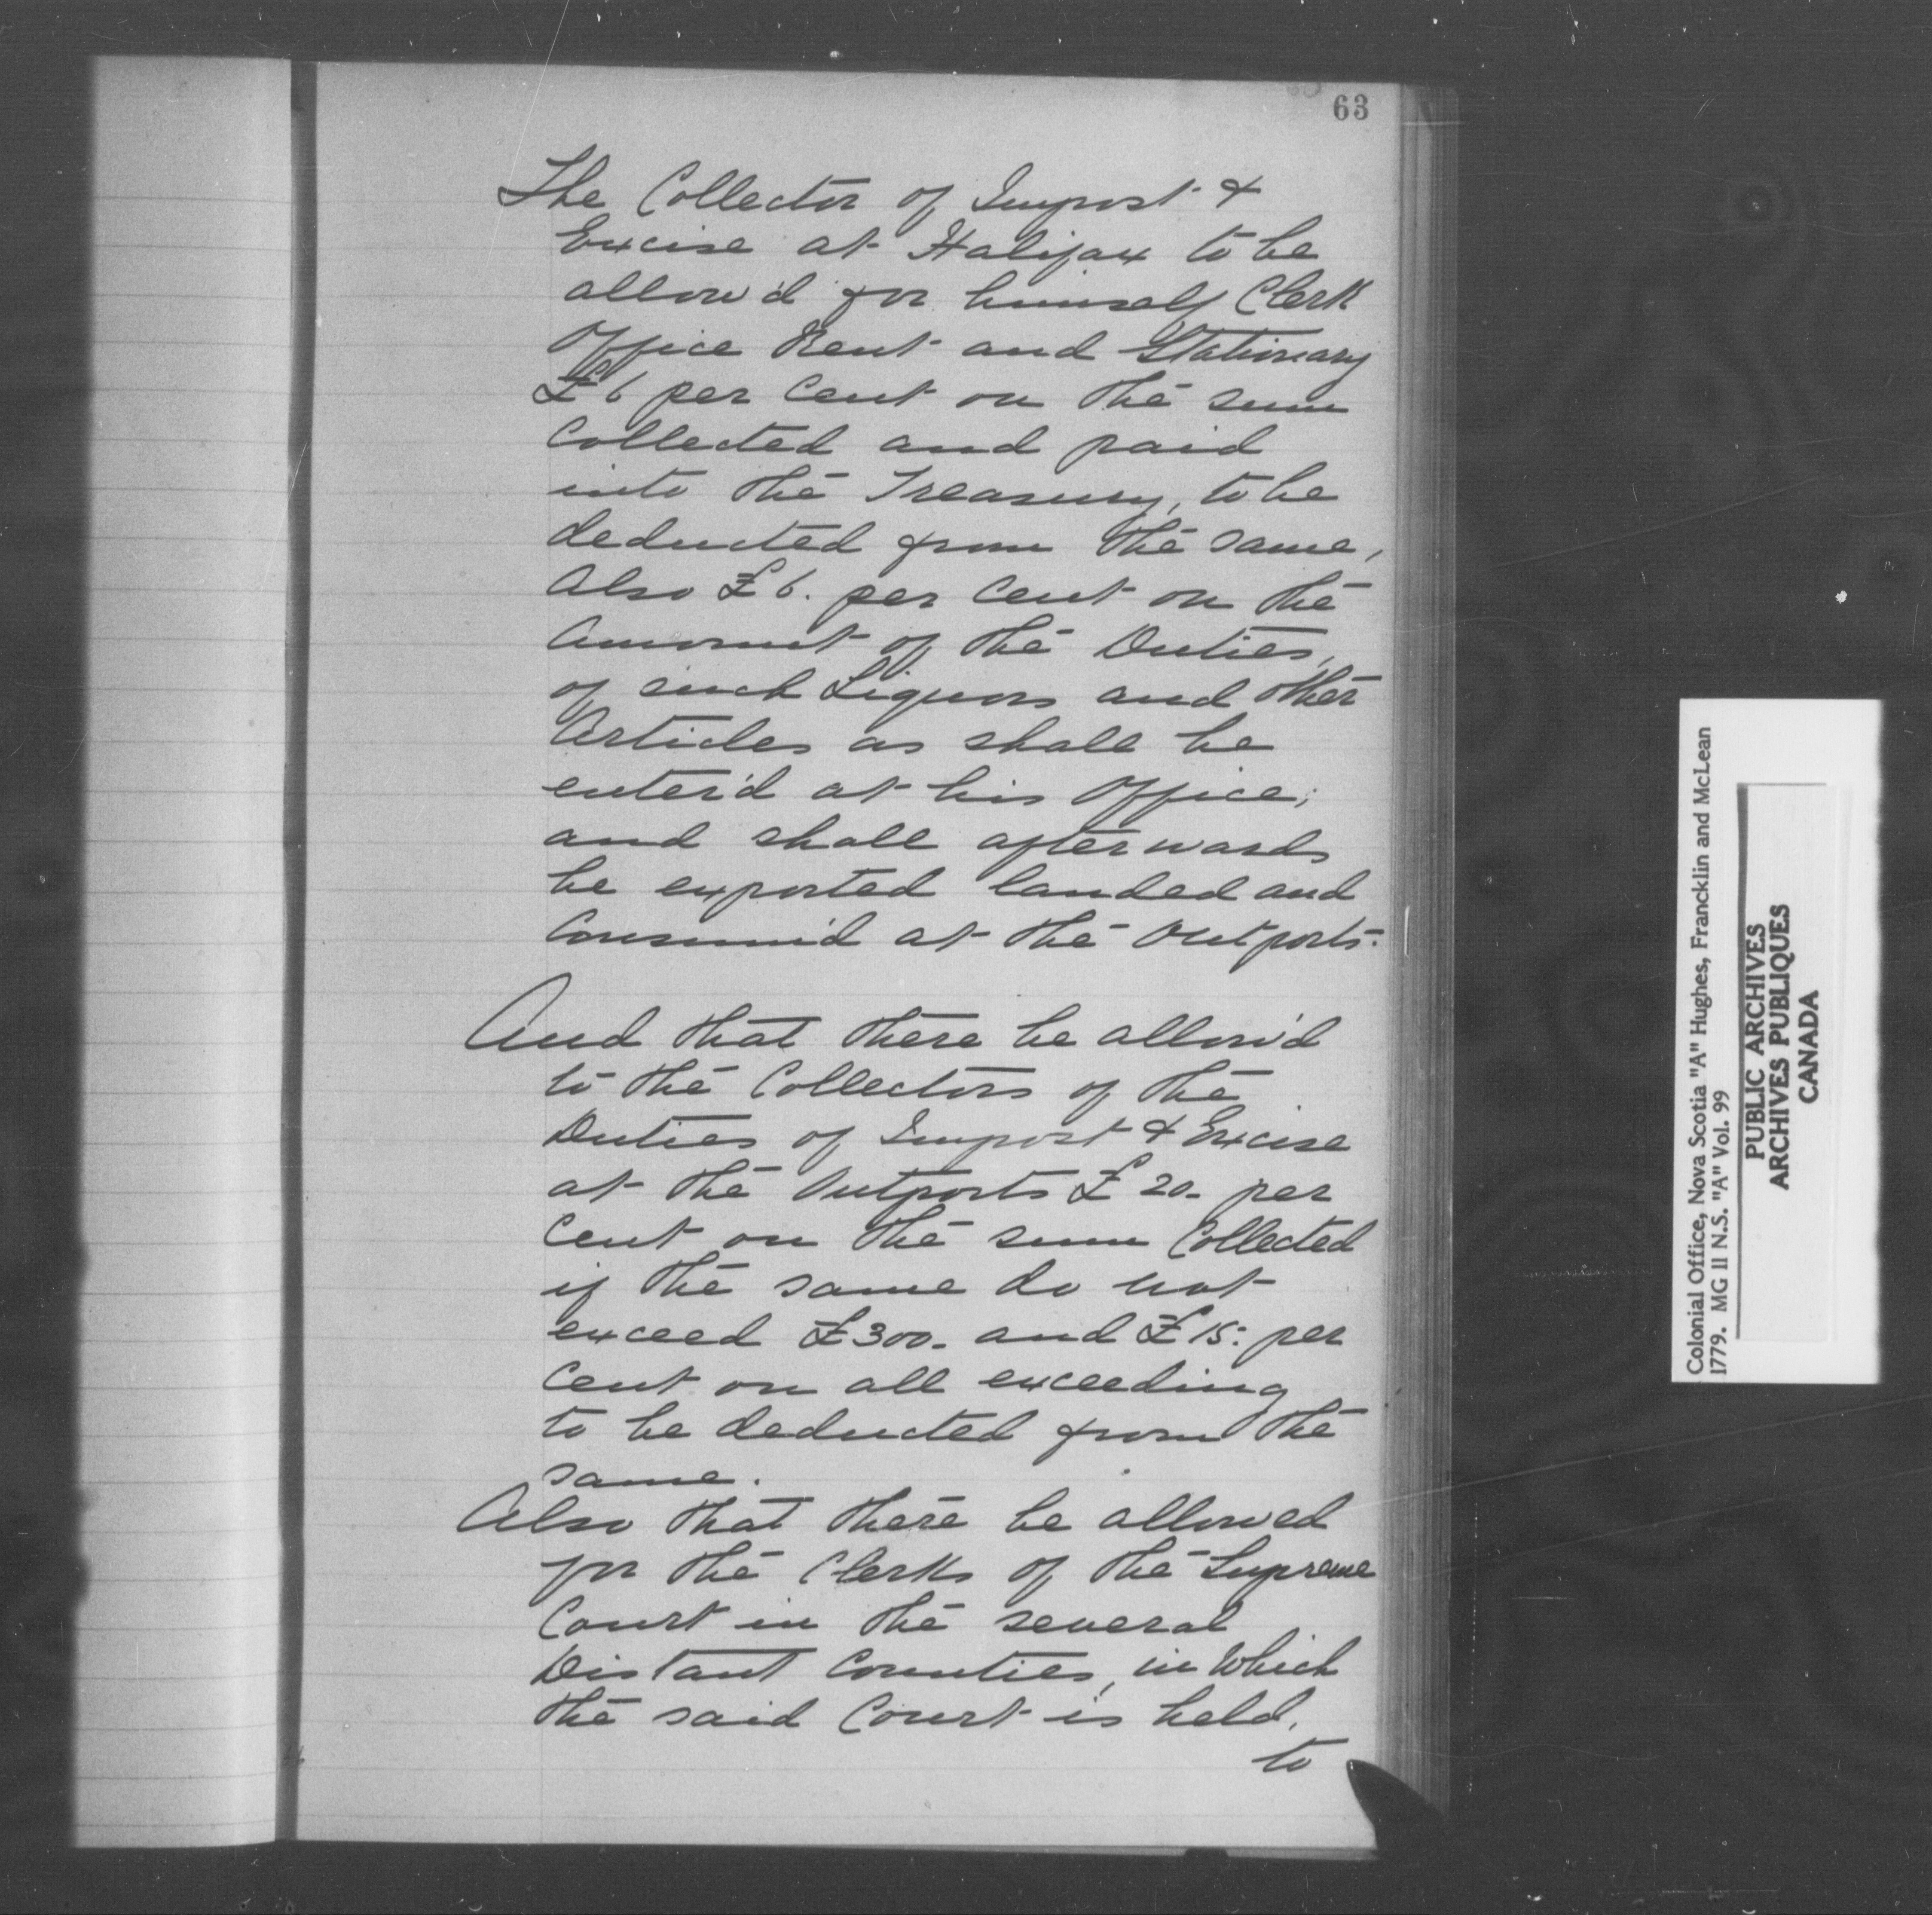 63
The Collector of Impost &
Excise at Halifax to be
allow'd for himself Clerk
Office Rent and Stationary
£6 per Cent on the sum
Collected and paid
into the Treasury, to be
deducted from the same,
Also £6. per Cent on the
Amount of the Duties,
of such Liquors and other
Articles as shall be
enter'd at his Office;
and shall afterwards
be exported landed and
Consum'd at the Outports.
And that there be allow'd
to the Collectors of the
Duties of Impost & Excise
at the Outports £20. per
Cent on the sum Collected
if the same do not
exceed £300. and £15. per
Cent on all exceeding
to be deducted from the
same.
Also that there be allowed
for the Clerks of the Supreme
Court in the several
Distant Counties, in Which
the said Court is held.
to
Colonial Office, Nova Scotia "A" Hughes, Francklin and McLean
1779. MG 11 N.S. "A" Vol. 99
PUBLIC ARCHIVES
ARCHIVES PUBLIQUES
CANADA